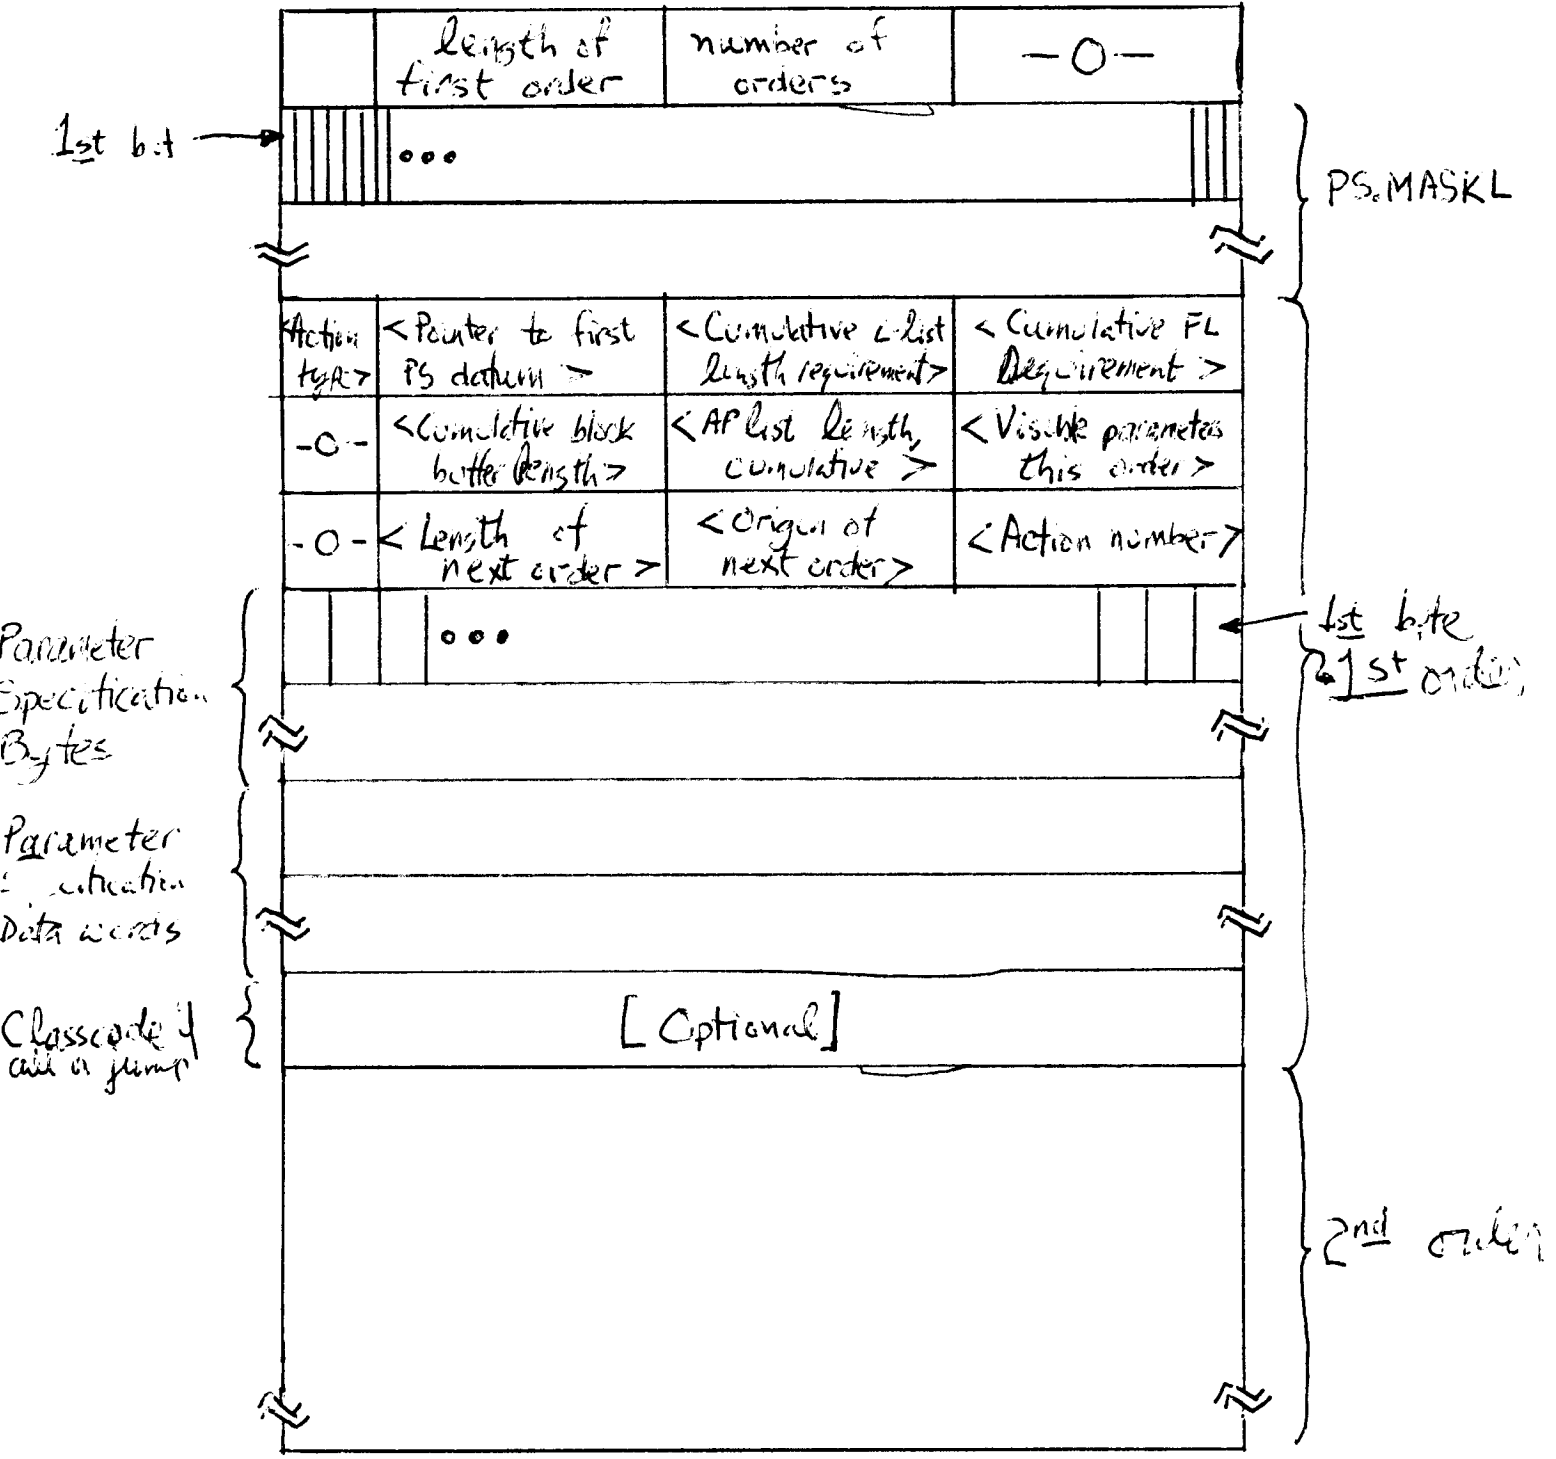 length of
first order
number of
orders
-O-
1st bit
PS.MASKL
<Action
type>
<Pointer to first
PS datum>
<Cumulative C-list
length requirement>
<Cumulative FL
Requirement>
-O-
<Cumulative block
buffer length>
<AP list length,
cumulative>
<Visible parameters
this order>
-O-
<Length of
next order>
<Origin of
next order>
<Action number>
1st byte
1st order
Parameter
Specification
Bytes
Parameter
Data words
Classcode if
call or jump
[Optional]
2nd order